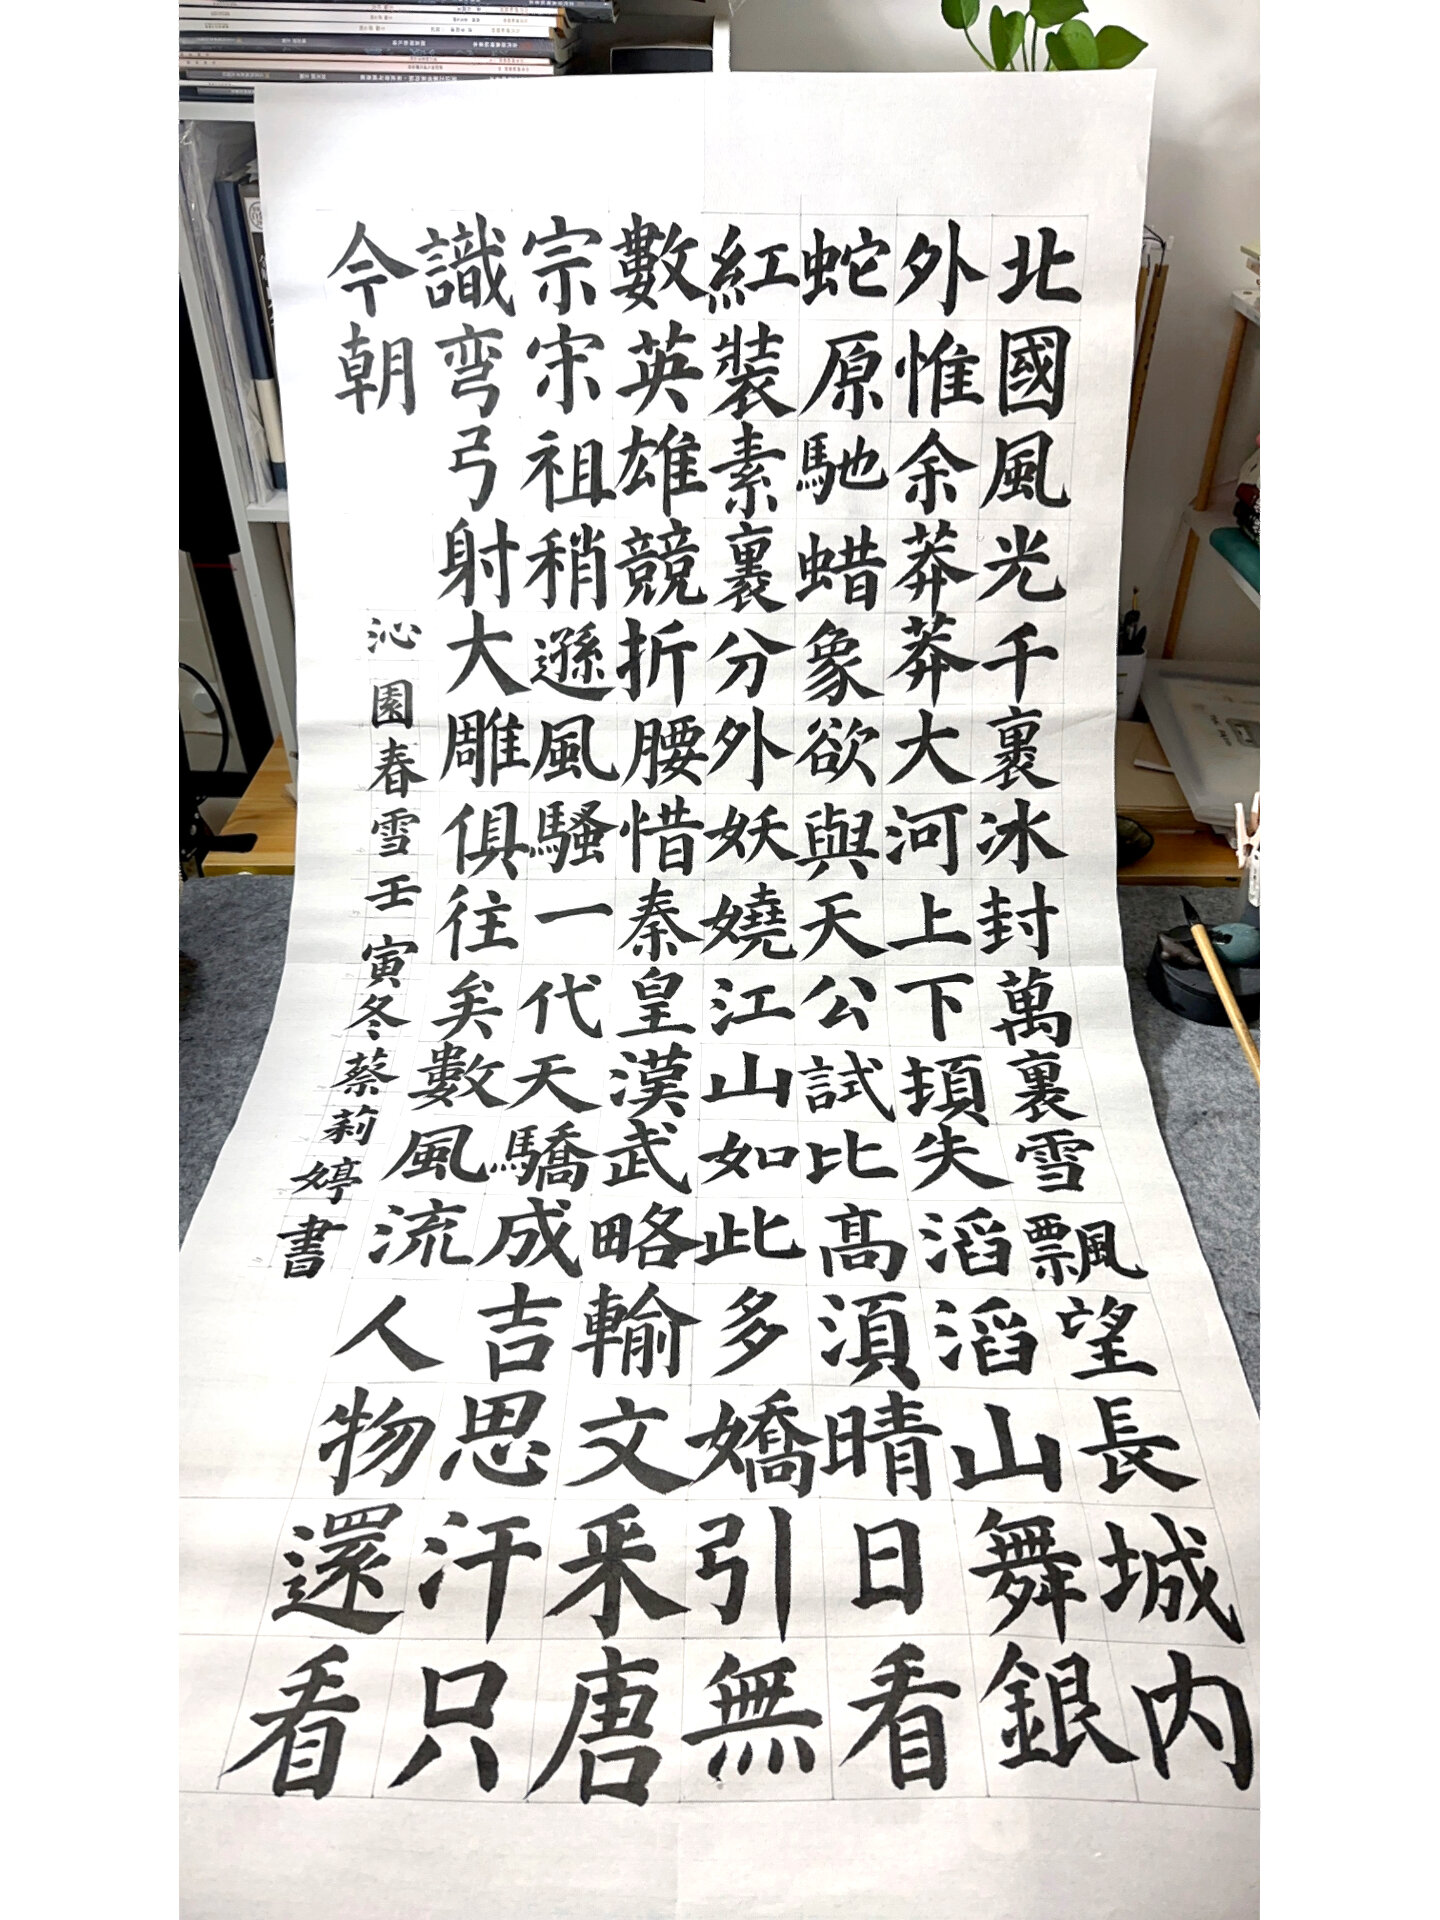 北國風光千裏冰封萬裏雪飄望長城内
外惟余莽莽大河上下頓失滔滔山舞銀
蛇原馳蜡象欲與天公試比高須晴日看
紅裝素裹分外妖嬈江山如此多嬌引無
數英雄競折腰惜秦皇漢武略輸文采唐
宗宋祖稍遜風騷一代天驕成吉思汗只
識彎弓射大雕俱往矣數風流人物還看
今朝
沁園春雪壬寅冬蔡莉婷書